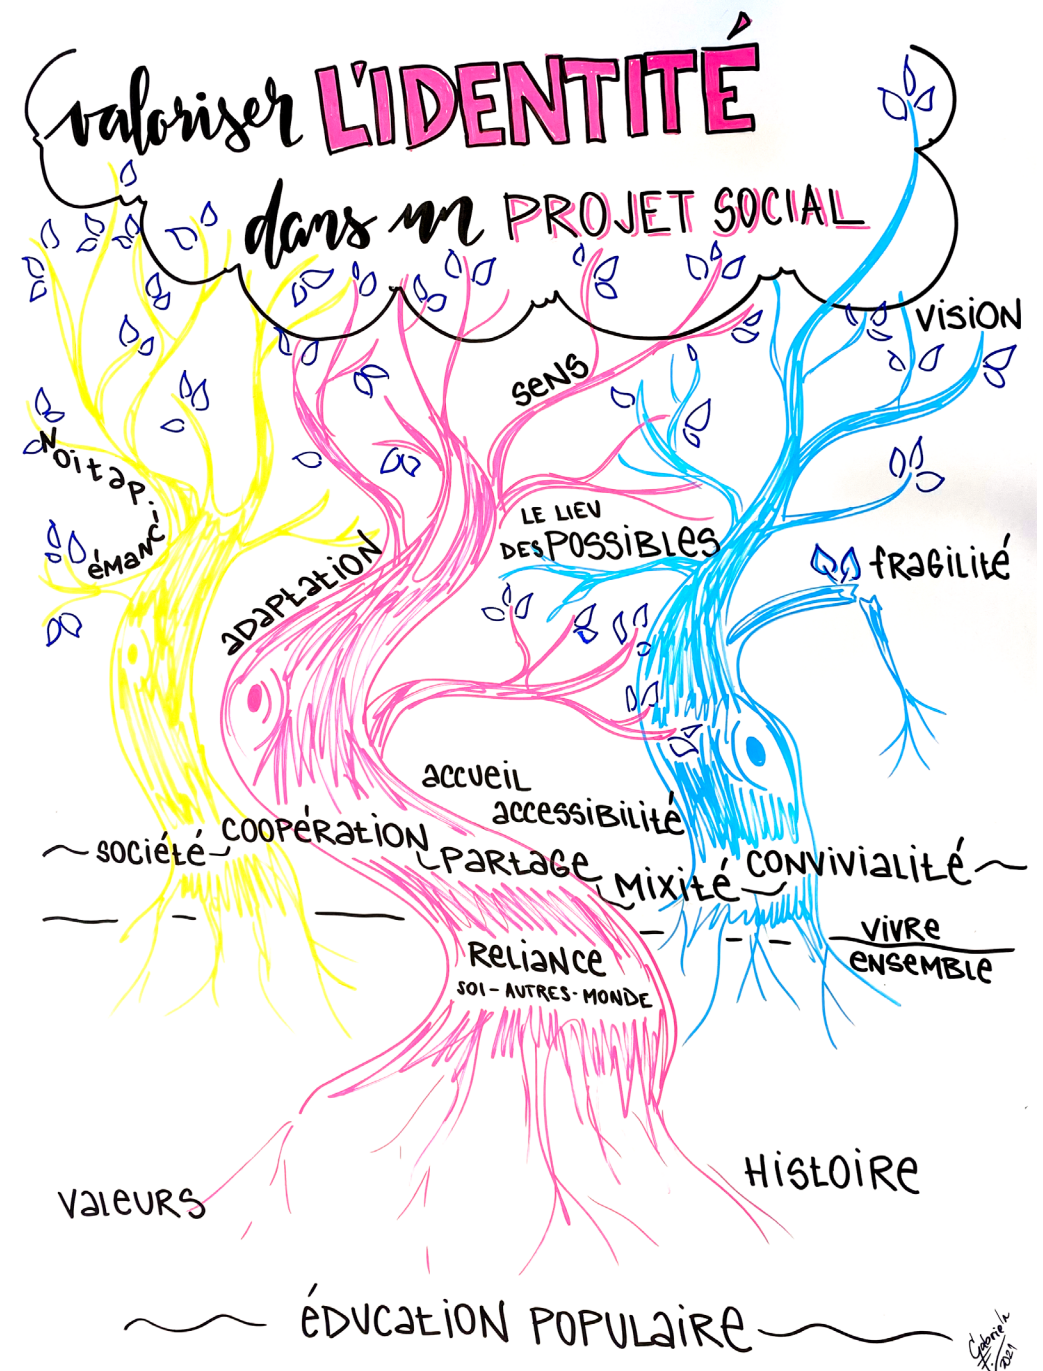 valoriser L'IDENTITÉ
dans un PROJET SOCIAL
VISION
SENS
émanciPatioN
LE LIEU
DES POSSIBLES
adaptation
fragilité
accueil
accessibilité
société
coopération
Partage
Mixité
convivialité
vivre
ensemble
Reliance
SOI - AUTRES - MONDE
Histoire
valeurs
éducation populaire
2021